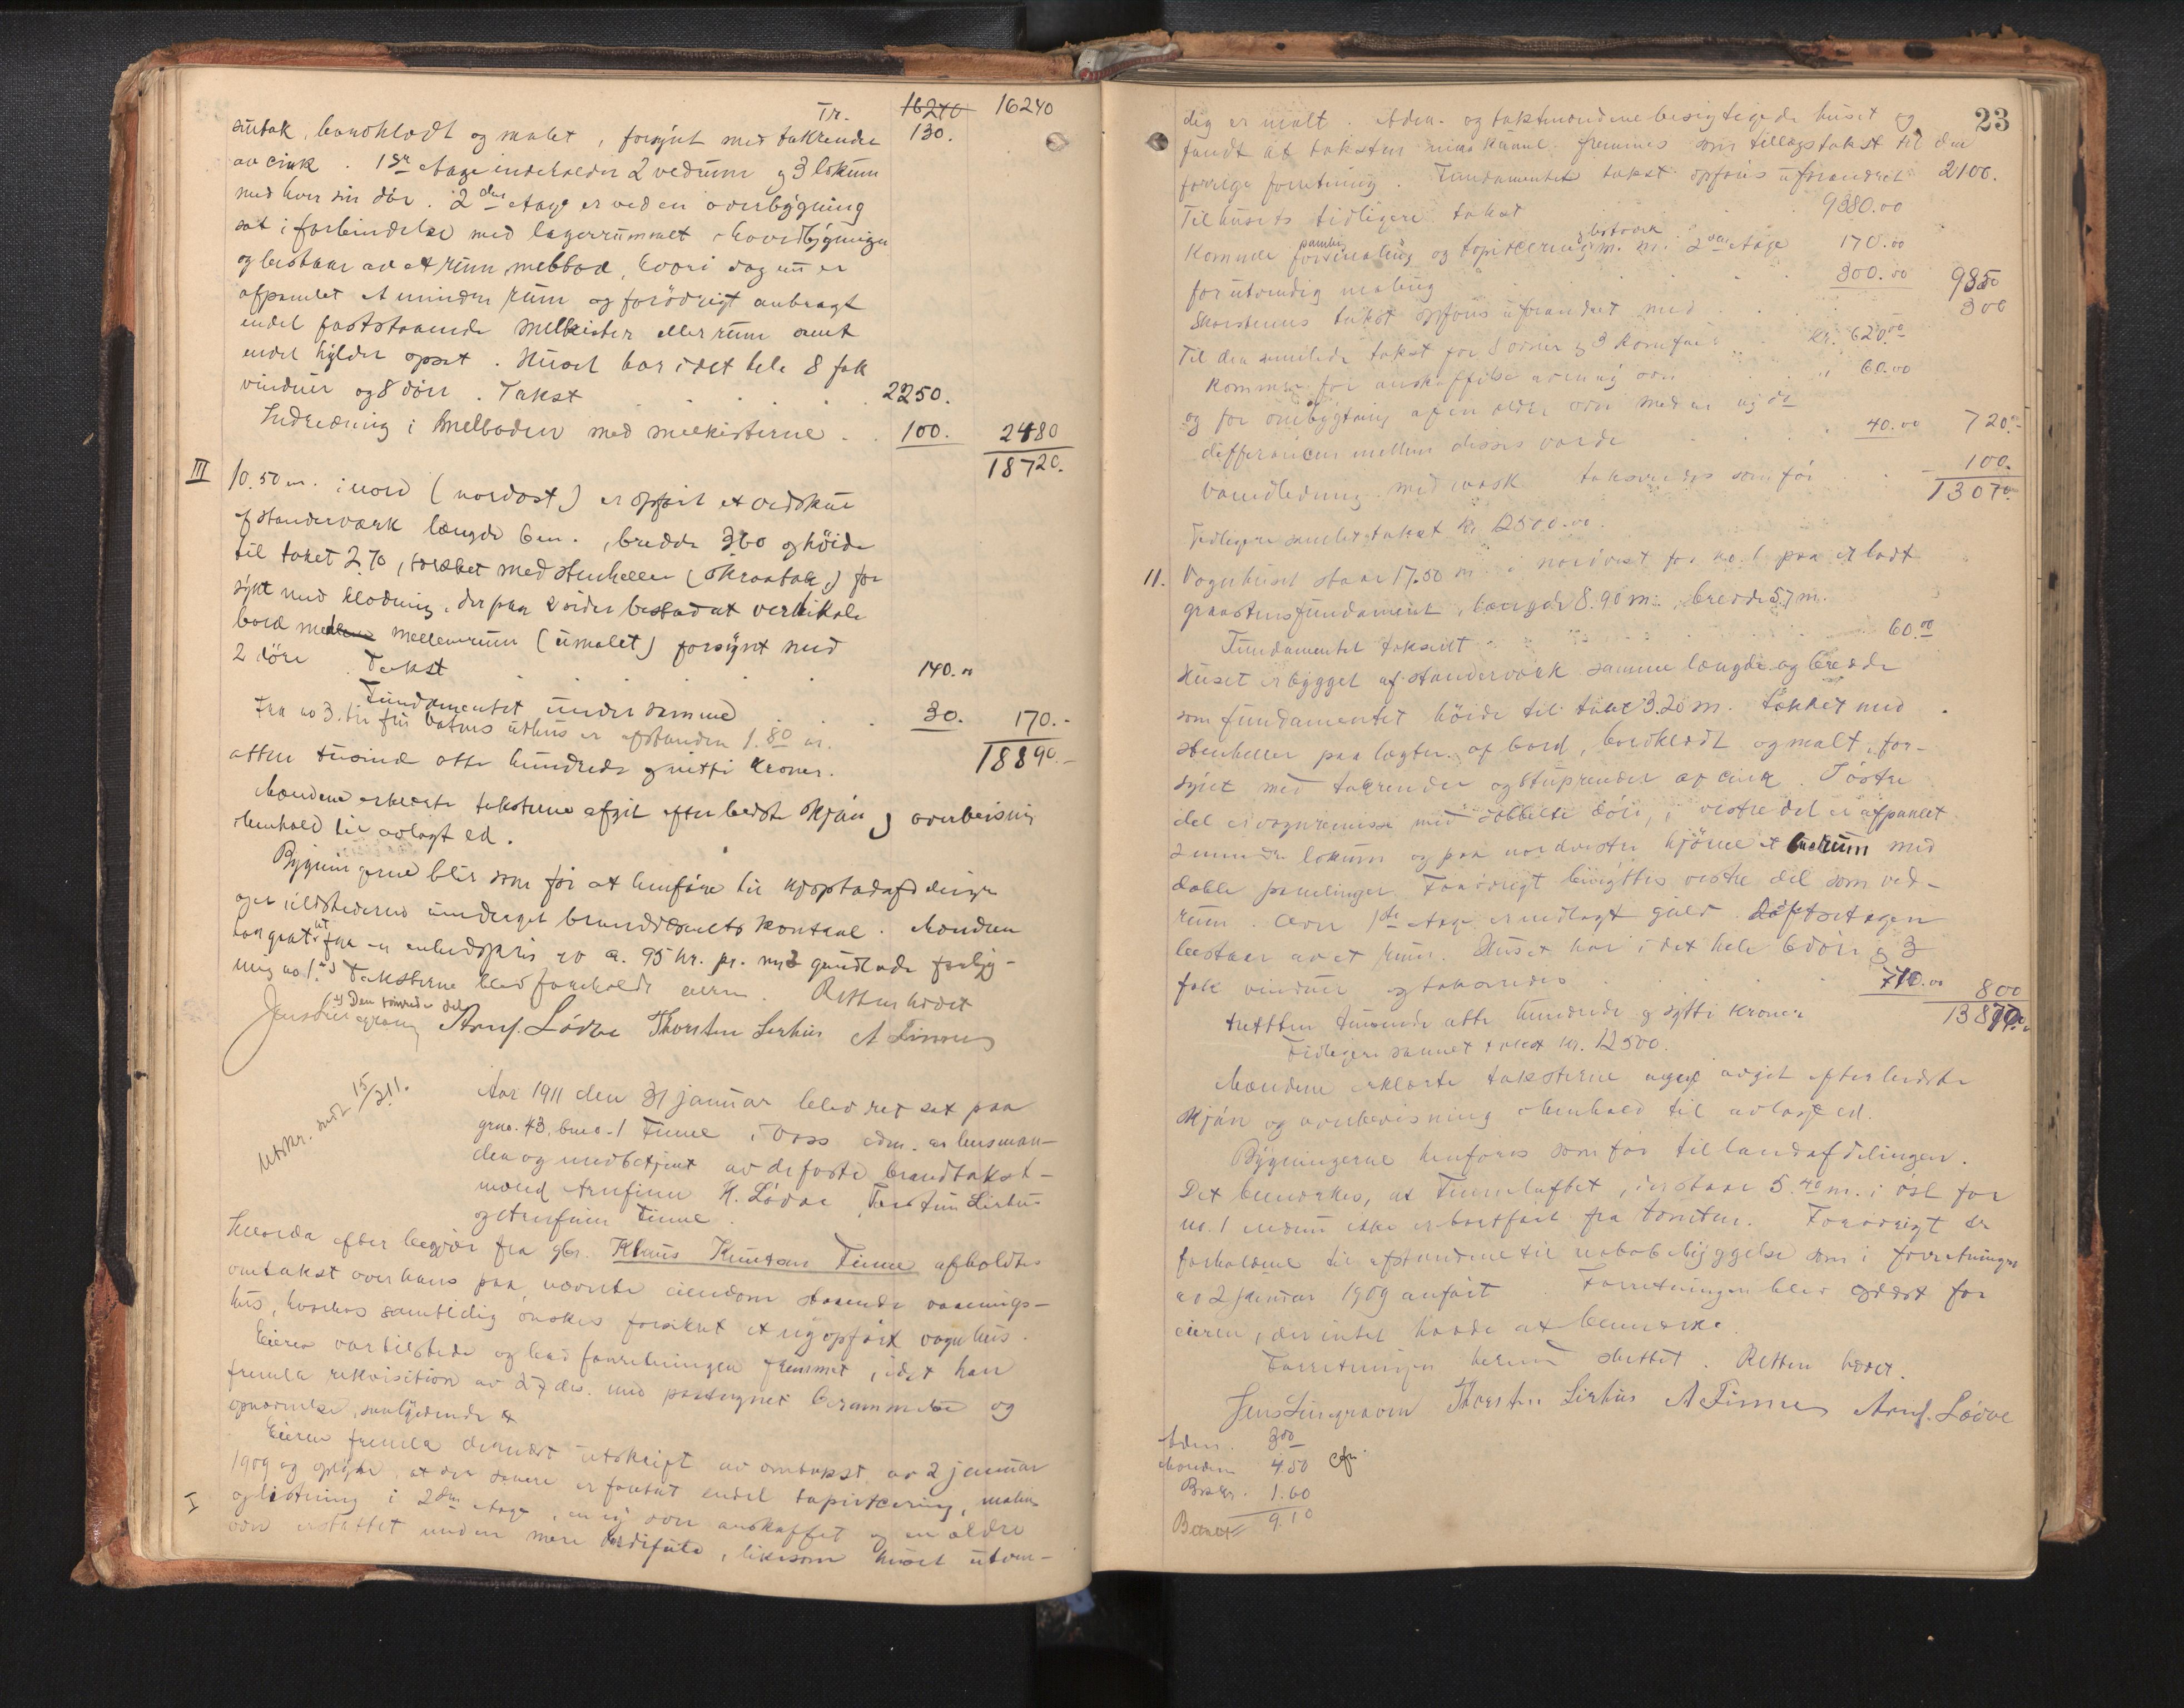 Tr. 16240 16240
bordklædt og malet, forsynt med takrender 130.
av cink. 1ste etage indeholder 2 vedrum og 3 lokum
med hver sin dør. 2den etage er ved en overbygning
sat i forbindelse med lagerrummet i hovedbygningen
og bestaar av et rum, melbod, hvori dog nu er
afpanelet et mindre rum og forøvrigt anbragt
endel faststaaende melkister eller rum samt
endel hylder opsat. Huset har i det hele 8 fak
vinduer og 8 døre. Takst 2250.
Indredning i melboden med melkisterne 100. 2480
18720.
III 10.50 m. i nord (nordost) er opført et vedskur
af standerværk længde 6 m., bredde 360 og høide
til taket 2.70, tækket med stenheller (skraatak,) for
synt med klædning, der paa 2 sider bestaar at vertikale
bord med mellemrum (umalet) forsynt med
2 døre. Takst 140.00
Fundamentet under samme 30. 170.-
Fra no 3 til fru Vatnes uthus er afstanden 1.80 m.
18890.-
atten tusind otte hundrede og nitti kroner.
Mændene erklærte taksterne afgit efter bedste skjøn og overbevisning
i henhold til avlagt ed.
Bygningerne blir som før at henføre til kjøpstadafdelingen
og er ildstederne underlagt brandvæsenets kontrol. Mændene
har gaat ut fra en enhedspris av ca. 95 kr. pr. m2 grundflade for byg-
ning no 1. Taksterne blev foreholdt eieren. Retten hævet
Jens Lindegraven Arnf. Lødve Thorsten Lirhus A Finne
Utskr. sendt 15/2 11.
Aar 1911 den 31 januar blev ret sat paa
grno. 43, brno. 1 Finne i Voss adm. av lensman-
den og medbetjent av de faste brandtakst-
mænd Arnfinn K. Lødve, Torstein Lirhus
og Arnfinn Finne.
Hvorda efter begjær fra gbr. Klaus Knutson Finne afholdtes
omtakst over hans paa nævnte eiendom staaende vaanings-
hus, hvorhos samtidig ønskes forsikret et nyopført vognhus.
Eieren var tilstede og bad forretningen fremmet, idet han
fremla rekvisition av 27 des. med paategnet berammelse og
opnævnelse, saalydende
Eieren fremla dernæst utskrift av omtakst av 2 januar
1909 og oplyste, at der senere er foretat endel tapitsering, maling
I og listning i 2den etage, en ny ovn anskaffet og en ældre
ovn erstattet med en mere værdifuld, likesom huset utven-
23
dig er malt. Adm. og takstmændene besigtigede huset og
fandt at taksten maa kunne fremmes som tillægstakst til den
forrige forretning. Fundamentet takst opføres uforandret 2100.
Til husets tidligere takst 9380.00
Kommer for paneling maling og tapitsering og listverk m. m. i 2den etage 170.00
for utvendig maling 300.00 9850
Skorstenens takst opføres uforandret med 300
Til den samlede takst for 8 ovner og 3 komfurer kr. 620.00
kommer for anskaffelse av en ny ovn 60.00
og for ombygtning af en ældre ovn med en ny do
differancen mellem disses værdi 40.00 720.-
Vandledning med vask taksværdes som før 100.
13070.
Tidligere samlet takst kr. 12500.00.
11. Vognhuset staar 17.50 m i nordvest for no. 1 paa et lavt
graastensfundament, længde 8.90 m., bredde 5.7 m.
Fundamentet taksert 60.00
Huset er bygget af standerværk samme længde og bredde
som fundamentet høide til taket 3.20 m. tækket med
stenheller paa lægter af bord, bordklædt og malt, for-
synt med takrender og stuprender af cink. I østre
del er vognremisse med dobbelte døre, i vestre del er afpanelt
2 mindre lokum og paa nordvestre hjørne et rum med
doble panelinger. Forøvrigt benyttes vestre del som ved-
rum. Over 1ste etage er indlagt gulv. Loftsetagen
bestaar av et rum. Huset har i det hele 6 døre og 3
fak vinduer og taksværdes 740.00 800
13870.
tretten tusinde otte hundrede og sytti kroner
Tidligere samlet takst kr. 12500.
Mændene erklærte taksterne avgit efter bedste
skjøn og overbevisning i henhold til avlagt ed.
Bygningerne henføres som før til landafdelingen.
Det bemerkes, at Finneloftet, der staar 5.40 m. i øst for
no. 1 endnu ikke er bortført fra tomten. Forøvrigt er
forholdene til afstandene til nabobebyggelse som i forretningen
av 2 januar 1909 anført. Forretningen blev oplæst for
eieren, der intet havde at bemerke.
Forretningen hermed sluttet. Retten hævet.
Jens Lindegraven Thorsten Lirhus A Finne Arnf. Lødve
Adm. 3.00
Mændene 4.50
1.60
9.10